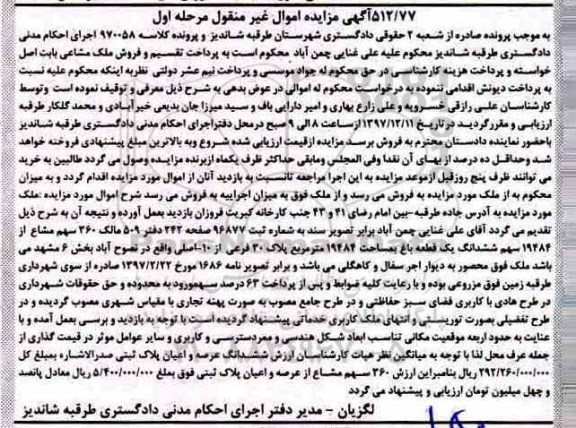 ۵۱۲/۷۷آگهی مزایده اموال غیر منقول مرحله اول
به موجب پرونده صادره از شعبه ۲ حقوقی دادگستری شهرستان طرقبه شاندیز و پرونده کلاسه ۹۷۰۰۵۸ اجرای احکام مدنی
دادگستری طرقبه شاندیز محکوم علیه علی غنایی چمن آباد محکوم است به پرداخت تقسیم و فروش ملک مشاعی بابت اصل
خواسته و پرداخت هزینه کارشناسی در حق محکوم له جواد موسسی و پرداخت نیم عشر دولتی نظربه اینکه محکوم علیه نسبت
به پرداخت دیونش اقدامی ننموده به درخواست محکوم له اموالی در عوض بدهی به شرح ذیل معرفی و توقیف نموده است وتوسط
کارشناسان علی رازقی خسرویه و علی زارع بهاری و امیر دارایی باف و سید میرزا جان بدیعی خیرآبادی و محمد گلکار طرقبه
ارزیابی و مقررگردید در تاریخ ۱۳۹۷/۱۲/۱۱ از ساعت ۸ الی ۹ صبح در محل دفتراجرای احکام مدنی دادگستری طرقبه شاندیز
باحضور نماینده دادستان محترم به فروش برسد مزایده ازقیمت ارزیابی شده شروع وبه بالاترین مبلغ پیشنهادی فروخته خواهد
شد وحداقل ده درصد از بهای آن نقدا وفی المجلس ومابقی حداکثر ظرف یکماه ازبرنده مزایده وصول می گردد طالبین به خرید
می توانند ظرف پنج روزقبل ازموعد مزایده به این اجرا مراجعه تانسبت به بازدید آنان از اموال مورد مزایده اقدام گردد و به میزان
محکوم به از ملک مورد مزایده به فروش می رسد و از ملک فوق به میزان اجراییه به فروش می رسد شرح اموال مورد مزایده :ملک
مورد مزایده به آدرس جاده طرقبه-بین امام رضای ۴۱ و ۴۳ جنب کارخانه کبریت فروزان بازدید بعمل آورده و نتیجه آن به شرح ذیل
تقدیم می گردد آقای علی غنایی چمن آباد برابر تصویر سند به شماره ثبت ۹۶۸۷۷ صفحه ۲۴۲ دفتر ۵۰۹ مالک ۳۶۰ سهم مشاع از
۱۹۴۸۴ سهم ششدانگ یک قطعه باغ بمساحت ۱۹۴۸۴ مترمربع پلاک ۳۰ فرعی از ۱۰-اصلی واقع در نصوح آباد بخش ۶ مشهد می
باشد ملک فوق محصور به دیوار اجر سفال و کاهگلی می باشد و برابر تصویر نامه ۱۶۸۶ مورخ ۱۳۹۷/۲/۲۲ صادره از سوی شهرداری
طرقبه زمین فوق مزروعی بوده و با رعایت کلیه ضوابط و پس از پرداخت ۶۳ درصد سهم ورود به محدوده و حق حقوقات شهرداری
در طرح هادی با کاربری فضای سبز حفاظتی و در طرح جامع مصوب به صورت پهنه تجاری با مقیاس شهری مصوب گردیده و در
طرح تفضیلی بصورت توریستی و انتهای ملک کاربری خدماتی پیشنهاد گردیده است با توجه به بازدید و بررسی بعمل آمده و با
عنایت به حدود اربعه موقعیت مکانی تناسب ابعاد شکل هندسی و معبردسترسی و کاربری و سایر عوامل موثر در قیمت گذاری از
جمله عرف محل لذا با توجه به میانگین نظر هیات کارشناسان ارزش ششدانگ عرصه و اعیان پلاک ثبتی صدرالاشاره بمبلغ کل
۲۹۲/۲۶۰/۰۰۰/۰۰۰ ریال بنابراین ارزش ۳۶۰ سهم مشاع از عرصه و اعیان پلاک ثبتی فوق بمبلغ ۵/۴۰۰/۰۰۰/۰۰۰ ریال معادل پانصد
و چهل میلیون تومان ارزیابی و پیشنهاد می گردد
لگزیان - مدیر دفتر اجرای احکام مدنی دادگستری طرقبه شاندیز